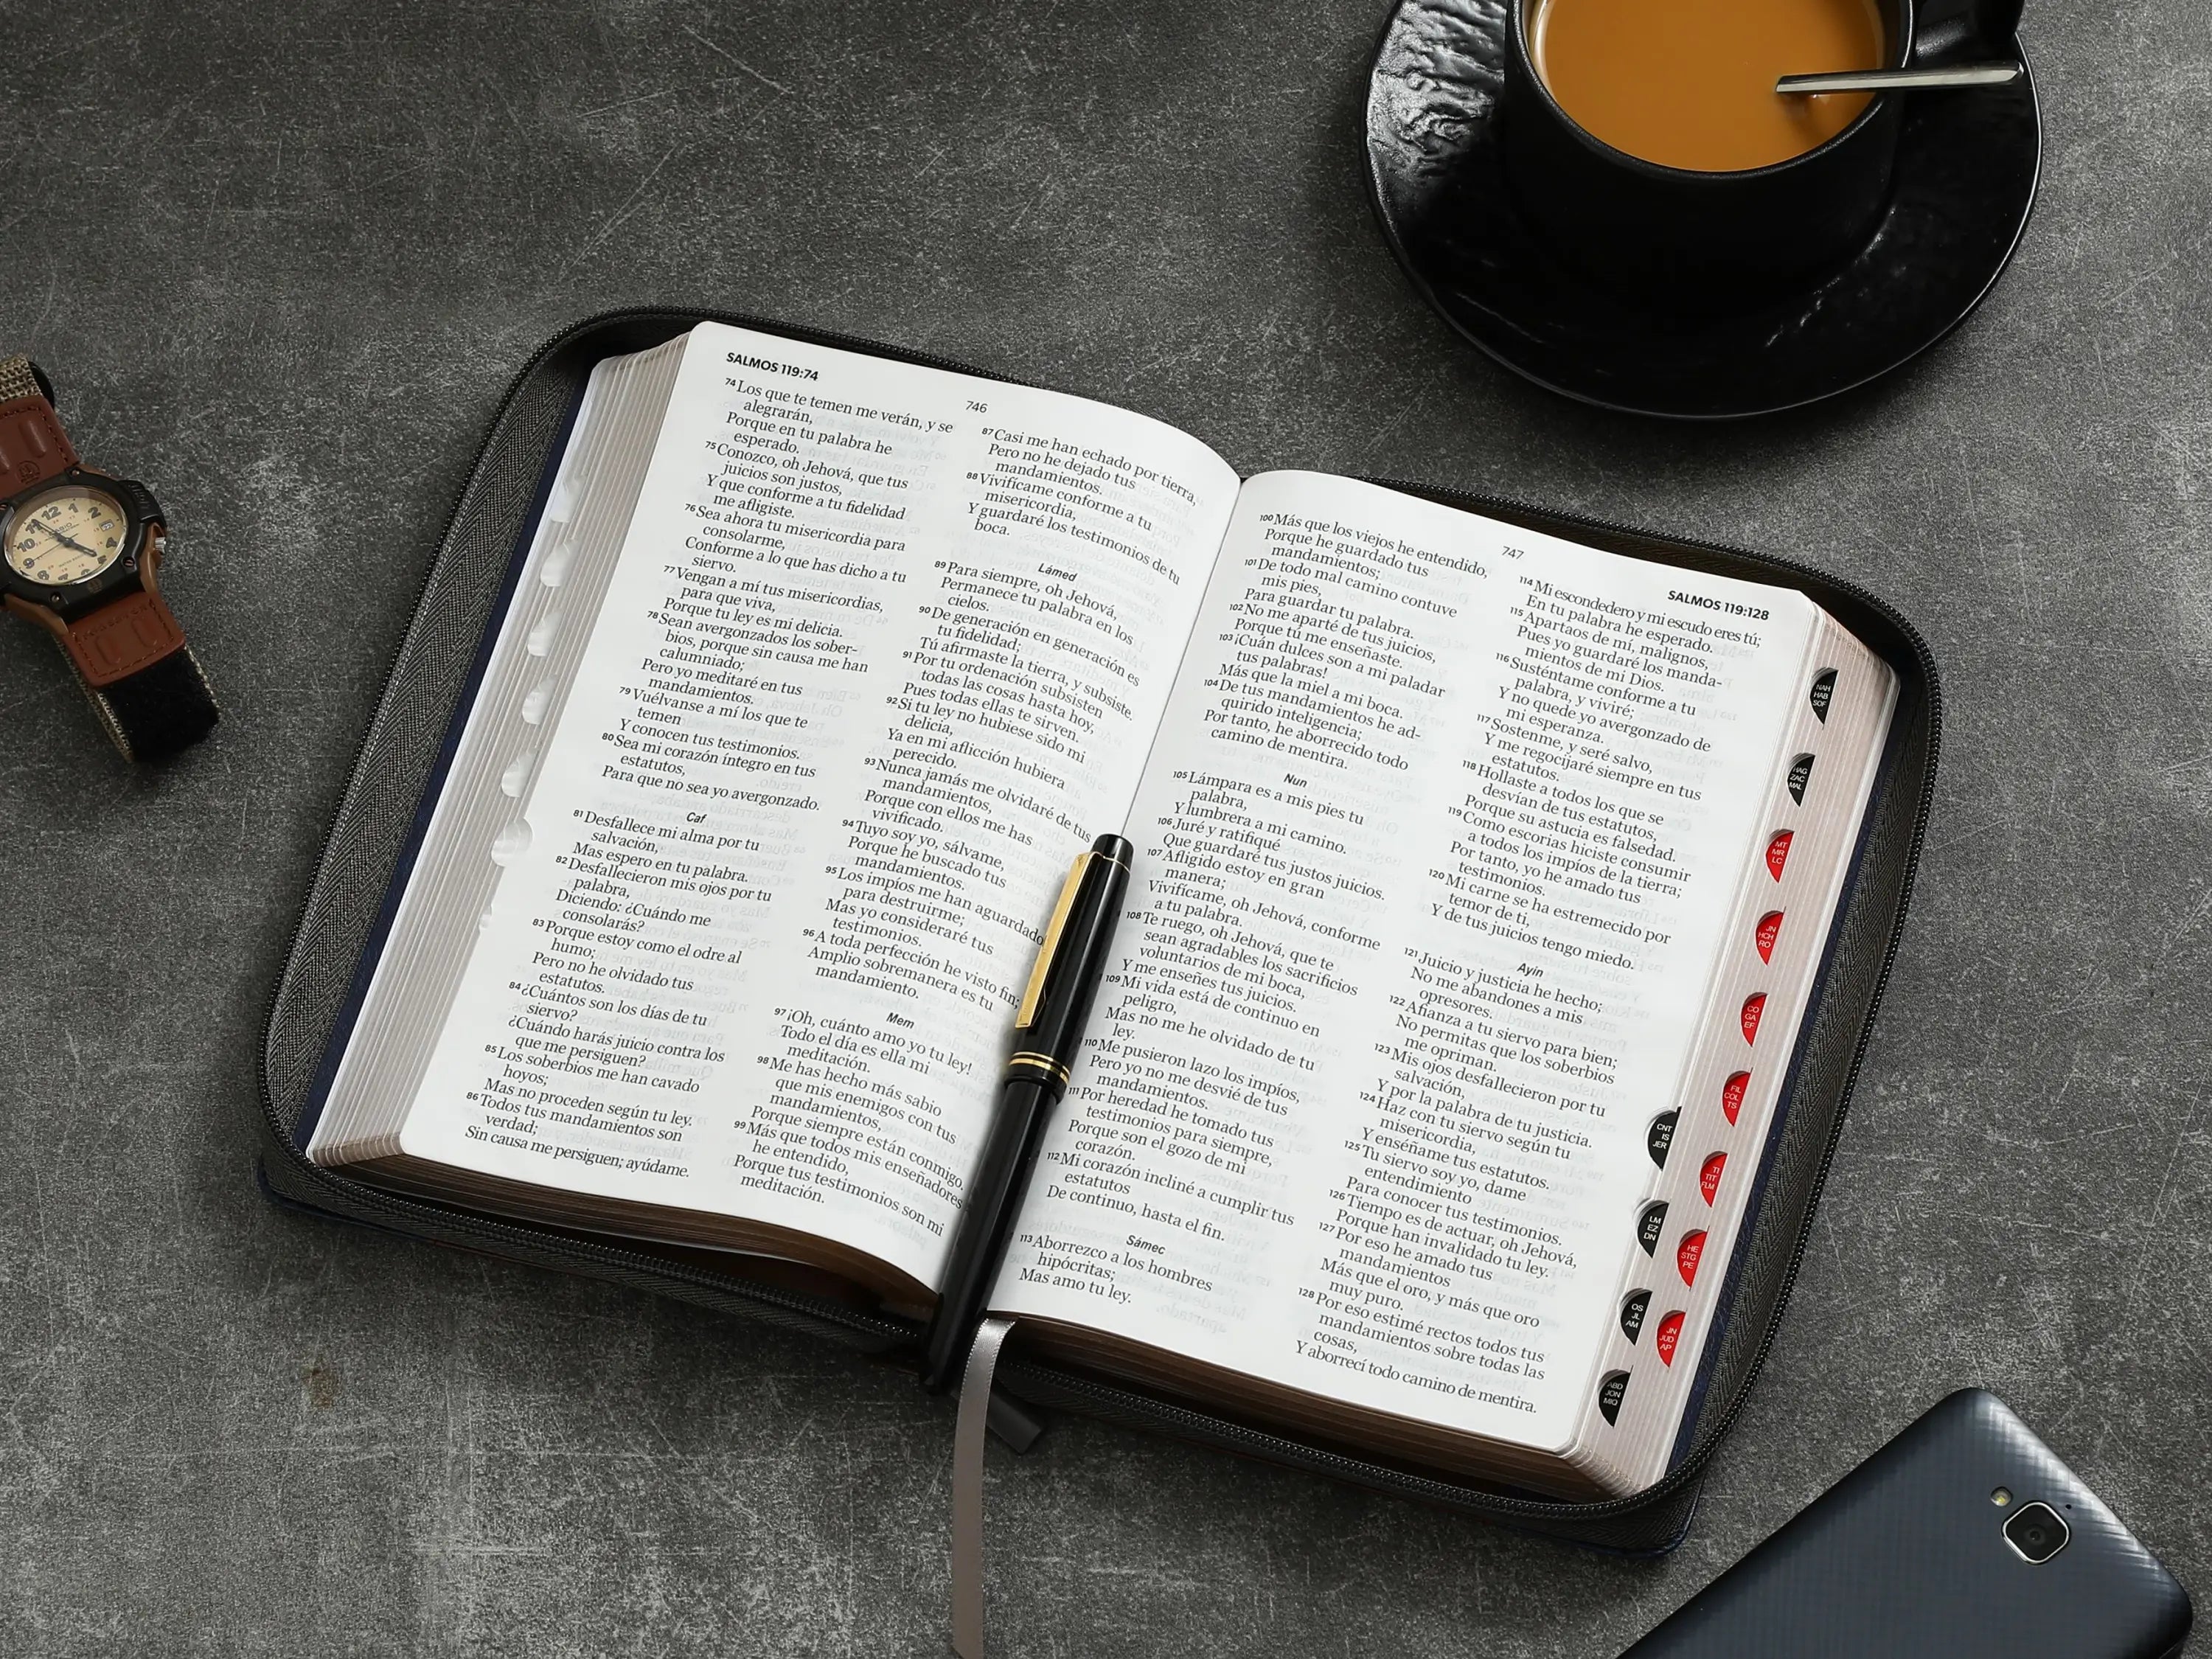 SALMOS 119:74
746
74 Los que te temen me verán, y se
alegrarán,
Porque en tu palabra he
esperado.
75 Conozco, oh Jehová, que tus
juicios son justos,
Y que conforme a tu fidelidad
me afligiste.
76 Sea ahora tu misericordia para
consolarme,
Conforme a lo que has dicho a tu
siervo.
77 Vengan a mí tus misericordias,
para que viva,
Porque tu ley es mi delicia.
78 Sean avergonzados los sober-
bios, porque sin causa me han
calumniado;
Pero yo meditaré en tus
mandamientos.
79 Vuélvanse a mí los que te
temen
Y conocen tus testimonios.
80 Sea mi corazón íntegro en tus
estatutos,
Para que no sea yo avergonzado.
Caf
81 Desfallece mi alma por tu
salvación,
Mas espero en tu palabra.
82 Desfallecieron mis ojos por tu
palabra,
Diciendo: ¿Cuándo me
consolarás?
83 Porque estoy como el odre al
humo;
Pero no he olvidado tus
estatutos.
84 ¿Cuántos son los días de tu
siervo?
¿Cuándo harás juicio contra los
que me persiguen?
85 Los soberbios me han cavado
hoyos;
Mas no proceden según tu ley.
86 Todos tus mandamientos son
verdad;
Sin causa me persiguen; ayúdame.
87 Casi me han echado por tierra,
Pero no he dejado tus
mandamientos.
88 Vivifícame conforme a tu
misericordia,
Y guardaré los testimonios de tu
boca.
Lámed
89 Para siempre, oh Jehová,
Permanece tu palabra en los
cielos.
90 De generación en generación es
tu fidelidad;
Tú afirmaste la tierra, y subsiste.
91 Por tu ordenación subsisten
todas las cosas hasta hoy,
Pues todas ellas te sirven.
92 Si tu ley no hubiese sido mi
delicia,
Ya en mi aflicción hubiera
perecido.
93 Nunca jamás me olvidaré de tus
mandamientos,
Porque con ellos me has
vivificado.
94 Tuyo soy yo, sálvame,
Porque he buscado tus
mandamientos.
95 Los impíos me han aguardado
para destruirme;
Mas yo consideraré tus
testimonios.
96 A toda perfección he visto fin;
Amplio sobremanera es tu
mandamiento.
Mem
97 ¡Oh, cuánto amo yo tu ley!
Todo el día es ella mi
meditación.
98 Me has hecho más sabio
que mis enemigos con tus
mandamientos,
Porque siempre están conmigo.
99 Más que todos mis enseñadores
he entendido,
Porque tus testimonios son mi
meditación.
747
SALMOS 119:128
100 Más que los viejos he entendido,
Porque he guardado tus
mandamientos;
101 De todo mal camino contuve
mis pies,
Para guardar tu palabra.
102 No me aparté de tus juicios,
Porque tú me enseñaste.
103 ¡Cuán dulces son a mi paladar
tus palabras!
Más que la miel a mi boca.
104 De tus mandamientos he ad-
quirido inteligencia;
Por tanto, he aborrecido todo
camino de mentira.
Nun
105 Lámpara es a mis pies tu
palabra,
Y lumbrera a mi camino.
106 Juré y ratifiqué
Que guardaré tus justos juicios.
107 Afligido estoy en gran
manera;
Vivifícame, oh Jehová, conforme
a tu palabra.
108 Te ruego, oh Jehová, que te
sean agradables los sacrificios
voluntarios de mi boca,
Y me enseñes tus juicios.
109 Mi vida está de continuo en
peligro,
Mas no me he olvidado de tu
ley.
110 Me pusieron lazo los impíos,
Pero yo no me desvié de tus
mandamientos.
111 Por heredad he tomado tus
testimonios para siempre,
Porque son el gozo de mi
corazón.
112 Mi corazón incliné a cumplir tus
estatutos
De continuo, hasta el fin.
Sámec
113 Aborrezco a los hombres
hipócritas;
Mas amo tu ley.
114 Mi escondedero y mi escudo eres tú;
En tu palabra he esperado.
115 Apartaos de mí, malignos,
Pues yo guardaré los manda-
mientos de mi Dios.
116 Susténtame conforme a tu
palabra, y viviré;
Y no quede yo avergonzado de
mi esperanza.
117 Sostenme, y seré salvo,
Y me regocijaré siempre en tus
estatutos.
118 Hollaste a todos los que se
desvían de tus estatutos,
Porque su astucia es falsedad.
119 Como escorias hiciste consumir
a todos los impíos de la tierra;
Por tanto, yo he amado tus
testimonios.
120 Mi carne se ha estremecido por
temor de ti,
Y de tus juicios tengo miedo.
Ayin
121 Juicio y justicia he hecho;
No me abandones a mis
opresores.
122 Afianza a tu siervo para bien;
No permitas que los soberbios
me opriman.
123 Mis ojos desfallecieron por tu
salvación,
Y por la palabra de tu justicia.
124 Haz con tu siervo según tu
misericordia,
Y enséñame tus estatutos.
125 Tu siervo soy yo, dame
entendimiento
Para conocer tus testimonios.
126 Tiempo es de actuar, oh Jehová,
Porque han invalidado tu ley.
127 Por eso he amado tus
mandamientos
Más que el oro, y más que oro
muy puro.
128 Por eso estimé rectos todos tus
mandamientos sobre todas las
cosas,
Y aborrecí todo camino de mentira.
NAH
HAB
SOF
HAG
ZAC
MAL
MT
MR
LC
JN
HCH
RO
CO
GA
EF
FIL
COL
TS
CNT
IS
JER
TI
TIT
FLM
LM
EZ
DN
HE
STG
PE
OS
JL
AM
JN
JUD
AP
ABD
JON
MIQ